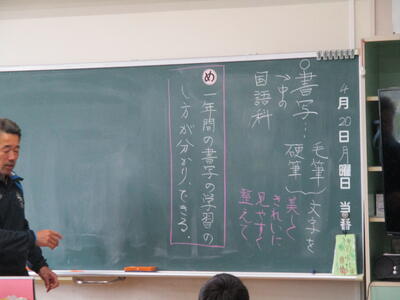 4月20日月曜日 当番
○書写…毛筆 硬筆 文字を
→中の
国語科
美しく
きれいに
見やすく
整えて
め 一年間の書写の学習の
し方が分かり、できる。